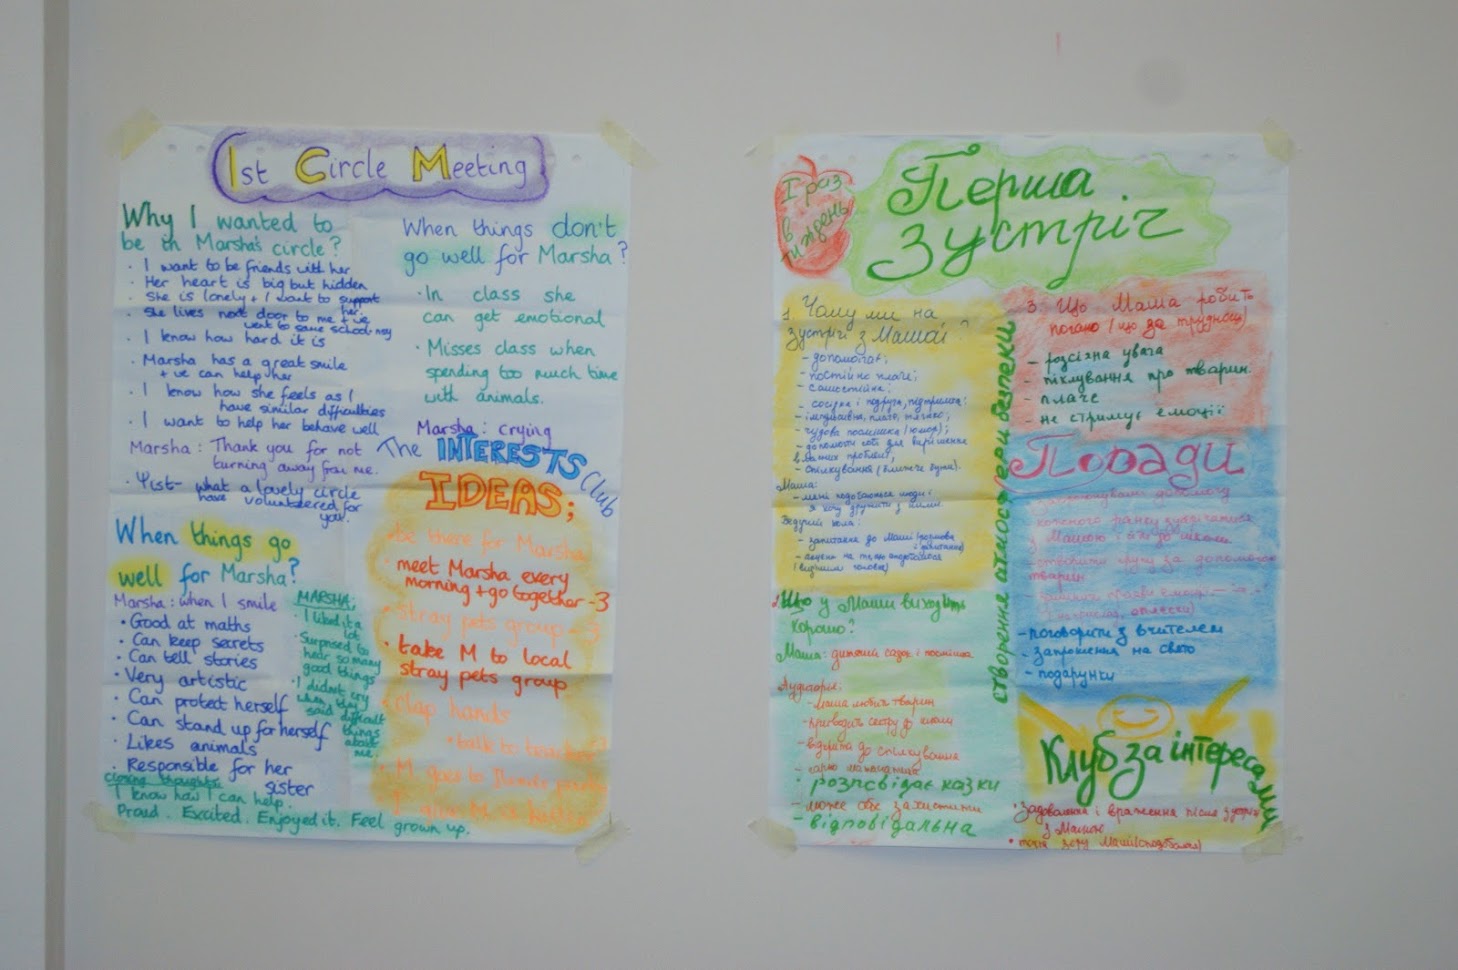 1st Circle Meeting
Why I wanted to
be in Marsha's circle?
· I want to be friends with her
· Her heart is big but hidden
· She is lonely + I want to support
her.
· She lives next door to me + we
went to same school nog
· I know how hard it is
· Marsha has a great smile
+ we can help her
· I know how she feels as I
have similar difficulties
· I want to help her behave well
Marsha: Thank you for not
turning away from me.
· Yist- what a lovely circle
have volunteered for
you.
When things go
well for Marsha?
Marsha: when I smile
· Good at maths
· Can keep secrets
· Can tell stories
· Very artistic
· Can protect herself
· Can stand up for herself
· Likes animals
· Responsible for her
sister
MARSHA:
· I liked it a
lot
· Surprised to
hear so many
good things
· I didn't cry
when they
said difficult
things
about
me.
closing thoughts:
I know how I can help.
Proud. Excited. Enjoyed it. Feel grown up.
When things don't
go well for Marsha?
· In class she
can get emotional
· Misses class when
spending too much time
with animals.
Marsha: crying
The INTERESTS Club
IDEAS;
· be there for Marsha
· meet Marsha every
morning + go together -3
· Stray pets group - 3
· take M to local
stray pets group
· Clap hands
· talk to teacher
· M goes to
I give M a
I раз
в
тиждень
Перша
Зустріч
1. Чому ми на
зустрічі з Машой?
- допомогає;
- постійно плаче;
- самостійна;
- сосідка і подруга, підтримка;
- імпульсивна, плаче,
- чудова посмішка (юмор);
- допомогти собі для вирішення
власних проблем;
- спілкування (ближче були).
Маша:
- мені подобаються люди і
я хочу дружити з ними.
Ведучий кола:
- запитання до Маші (розмова
2. Що у Маши виходить
хорошо?
Маша: дитячий садок і посмішка
Аудитория:
- Маша любить тварин
- приводить сестру до школи
- відкрита до спілкування
- гарно
розповідає казки
- може себе захистити
- відповідальна
створення атмосфери безпеки
3. Що Маша робить
погано (що за труднощі)
- розсіяна увага
- піклування про тварин
- плаче
- не стримує емоції
Поради
- запропонувати допомогу
кожного ранку зустрічатися
з Машою і йти до школи
- створити групу за допомогою
тварин
- поговорити з вчителем
- запрошення на свято
- подарунки
Клуб за інтересами
· Задоволення і враження після зустрічі
з Машою